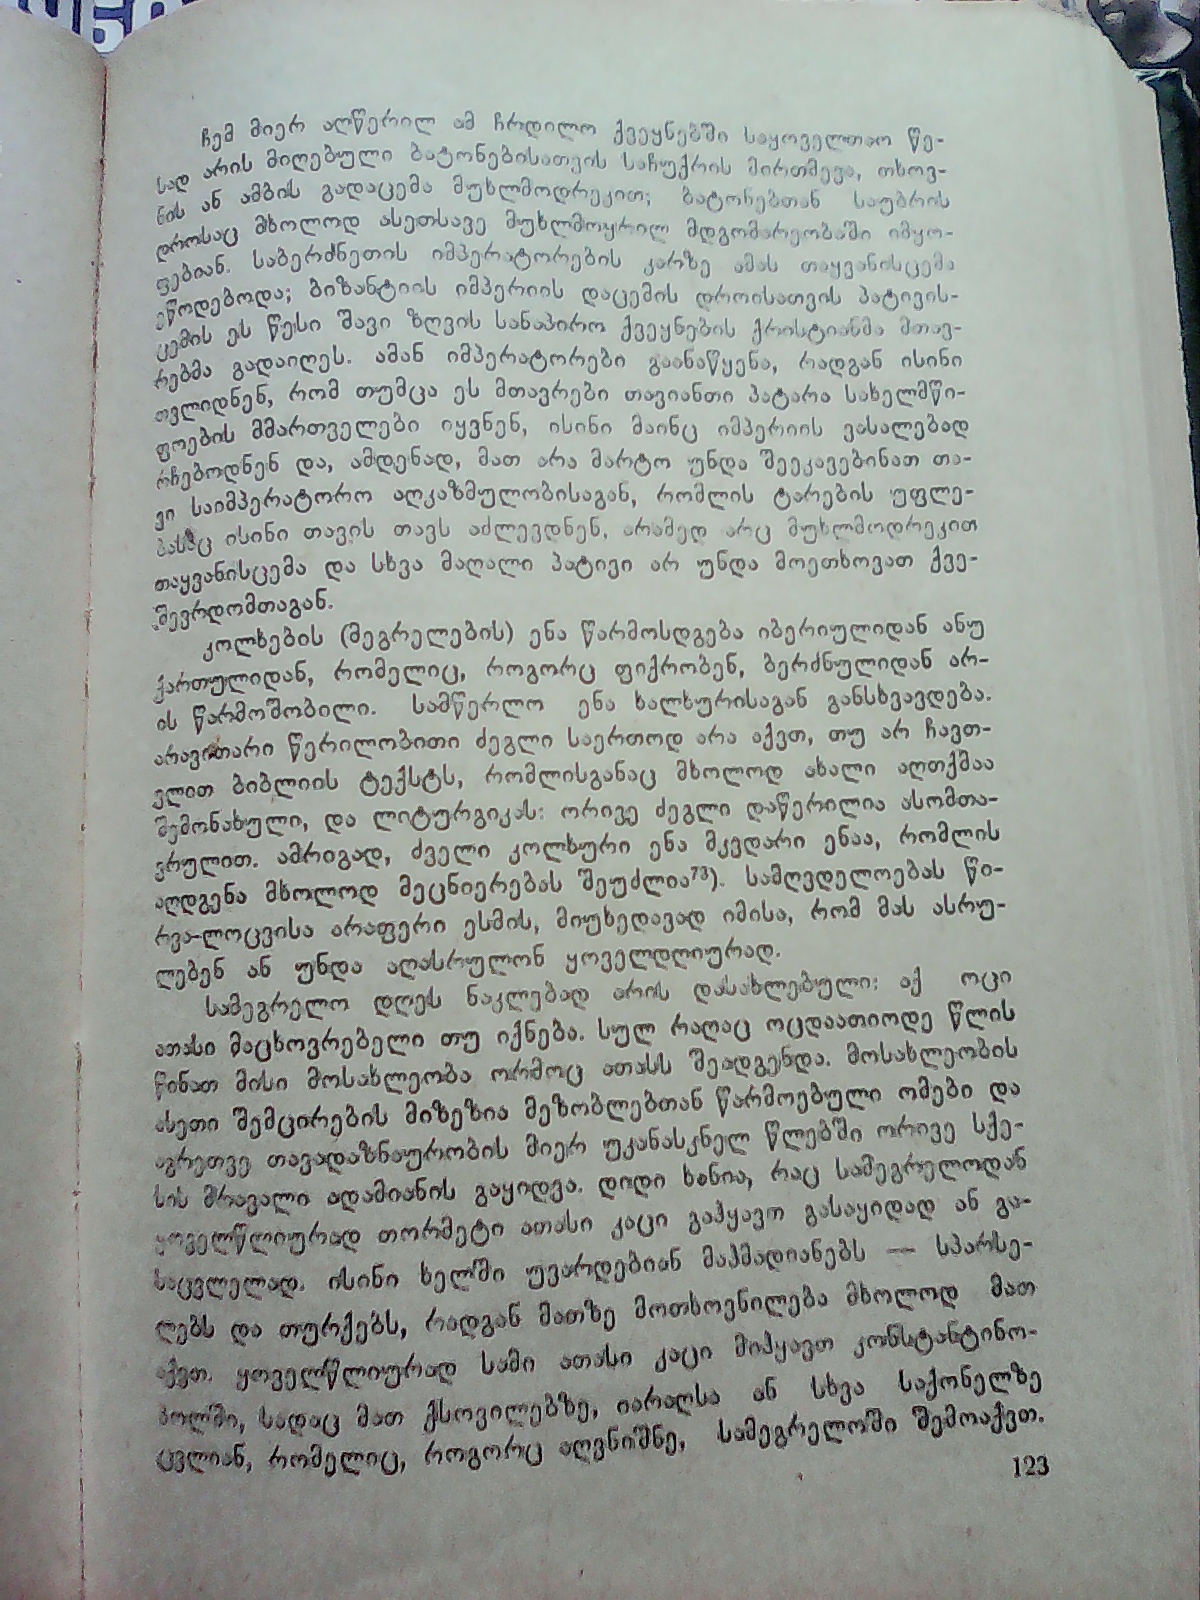 ჩემ მიერ აღწერილ ამ ჩრდილო ქვეყნებში საყოველთაო წე-
სად არის მიღებული ბატონებისათვის საჩუქრის მირთმევა, თხოვ-
ნის ან ამბის გადაცემა მუხლმოდრეკით; ბატონებთან საუბრის
დროსაც მხოლოდ ასეთსავე მუხლმოყრილ მდგომარეობაში იმყო-
ფებიან. საბერძნეთის იმპერატორების კარზე ამას თაყვანისცემა
ეწოდებოდა; ბიზანტიის იმპერიის დაცემის დროისათვის პატივის-
ცემის ეს წესი შავი ზღვის სანაპირო ქვეყნების ქრისტიანმა მთავ-
რებმა გადაიღეს. ამან იმპერატორები გაანაწყენა, რადგან ისინი
თვლიდნენ, რომ თუმცა ეს მთავრები თავიანთი პატარა სახელმწი-
ფოების მმართველები იყვნენ, ისინი მაინც იმპერიის ვასალებად
რჩებოდნენ და, ამდენად, მათ არა მარტო უნდა შეეკავებინათ თა-
ვი საიმპერატორო აღკაზმულობისაგან, რომლის ტარების უფლე-
ბასაც ისინი თავის თავს აძლევდნენ, არამედ არც მუხლმოდრეკით
თაყვანისცემა და სხვა მაღალი პატივი არ უნდა მოეთხოვათ ქვე-
შევრდომთაგან.
კოლხების (მეგრელების) ენა წარმოსდგება იბერიულიდან ანუ
ქართულიდან, რომელიც, როგორც ფიქრობენ, ბერძნულიდან არ-
ის წარმოშობილი. სამწერლო ენა ხალხურისაგან განსხვავდება.
არავითარი წერილობითი ძეგლი საერთოდ არა აქვთ, თუ არ ჩავთ-
ვლით ბიბლიის ტექსტს, რომლისგანაც მხოლოდ ახალი აღთქმაა
შემონახული, და ლიტურგიკას: ორივე ძეგლი დაწერილია ასომთა-
ვრულით. ამრიგად, ძველი კოლხური ენა მკვდარი ენაა, რომლის
აღდგენა მხოლოდ მეცნიერებას შეუძლია⁷³). სამღვდელოებას წი-
რვა-ლოცვისა არაფერი ესმის, მიუხედავად იმისა, რომ მას ასრუ-
ლებენ ან უნდა აღასრულონ ყოველდღიურად.
სამეგრელო დღეს ნაკლებად არის დასახლებული: აქ ოცი
ათასი მაცხოვრებელი თუ იქნება. სულ რაღაც ოცდაათიოდე წლის
წინათ მისი მოსახლეობა ორმოც ათასს შეადგენდა. მოსახლეობის
ასეთი შემცირების მიზეზია მეზობლებთან წარმოებული ომები და
აგრეთვე თავადაზნაურობის მიერ უკანასკნელ წლებში ორივე სქე-
სის მრავალი ადამიანის გაყიდვა. დიდი ხანია, რაც სამეგრელოდან
ყოველწლიურად თორმეტი ათასი კაცი გაჰყავთ გასაყიდად ან გა-
საცვლელად. ისინი ხელში უვარდებიან მაჰმადიანებს — სპარსე-
ლებს და თურქებს, რადგან მათზე მოთხოვნილება მხოლოდ მათ
აქვთ. ყოველწლიურად სამი ათასი კაცი მიჰყავთ კონსტანტინო-
პოლში, სადაც მათ ქსოვილებზე, იარაღსა ან სხვა საქონელზე
ცვლიან, რომელიც, როგორც აღვნიშნე, სამეგრელოში შემოაქვთ.
123